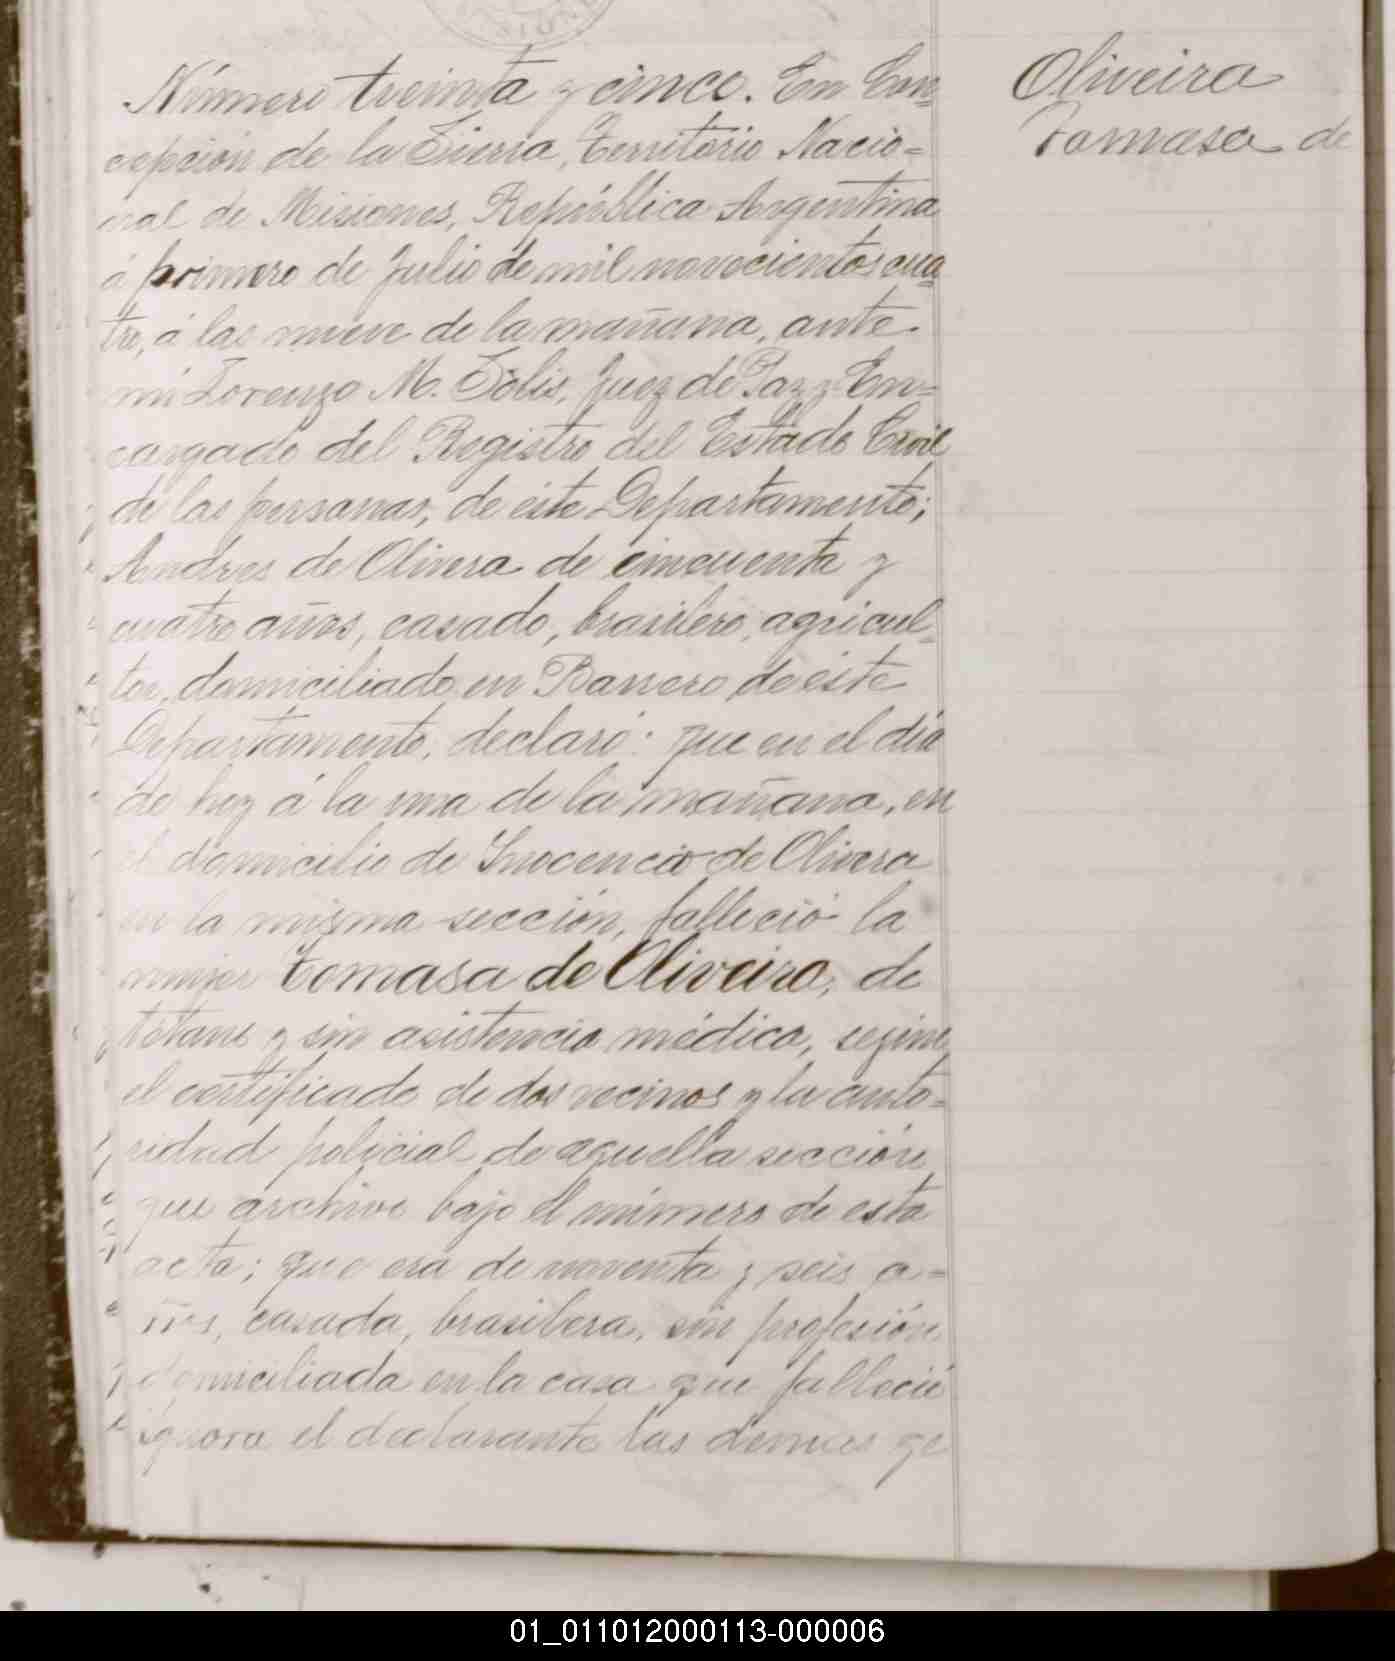 Número treinta y cinco. En Con-
cepción de la Sierra, Territorio Nacio=
nal de Misiones, República Argentina
á primero de Julio de mil novecientos cua-
tro, á las nueve de la mañana, ante
mí Lorenzo M. Solis, Juez de Paz y En=
cargado del Registro del Estado Civil
de las personas, de éste Departamento;
Andres de Olivera de cincuenta y
cuatro años, casado, brasilero, agricul-
tor, domiciliado en Barrero de éste
Departamento, declaró: que en el día
de hoy á la una de la mañana, en
el domicilio de Inocencio de Olivera
en la misma sección, falleció la
mujer Tomasa de Oliveira, de
tétano y sin asistencia médica, según
el certificado de dos vecinos y la auto=
ridad policial de aquella sección
que archivo bajo el número de esta
acta; que era de noventa y seis a=
ños, casada, brasilera, sin profesión
domiciliada en la casa que falleció
ignora el declarante las demas ge
Oliveira
Tomasa de
01_011012000113-000006